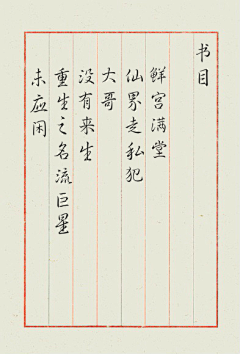 书目
鲜宫满堂
仙界走私犯
大哥
没有来生
重生之名流巨星
未应闲